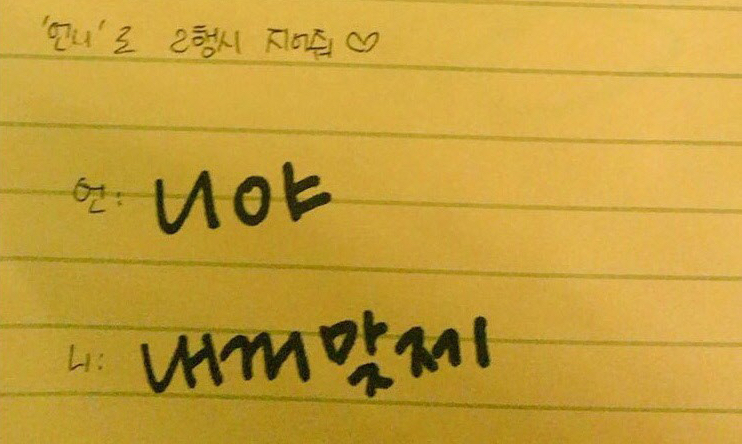 '언니'로 2행시 지어줘♡
언: 니야
니: 내꺼맞제